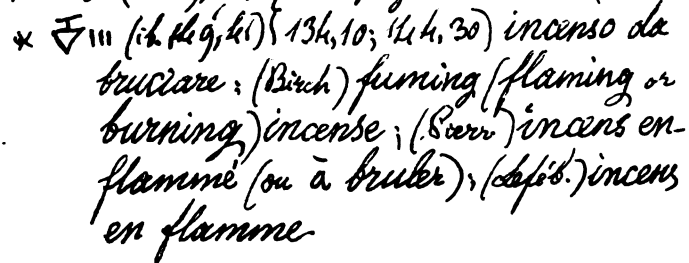 (134,10; 144,30) incenso da
bruciare; (Birch) fuming (flaming or
burning) incense; (Pierr.) incens en-
flammé (ou à bruler); (Leféb.) incens
en flamme